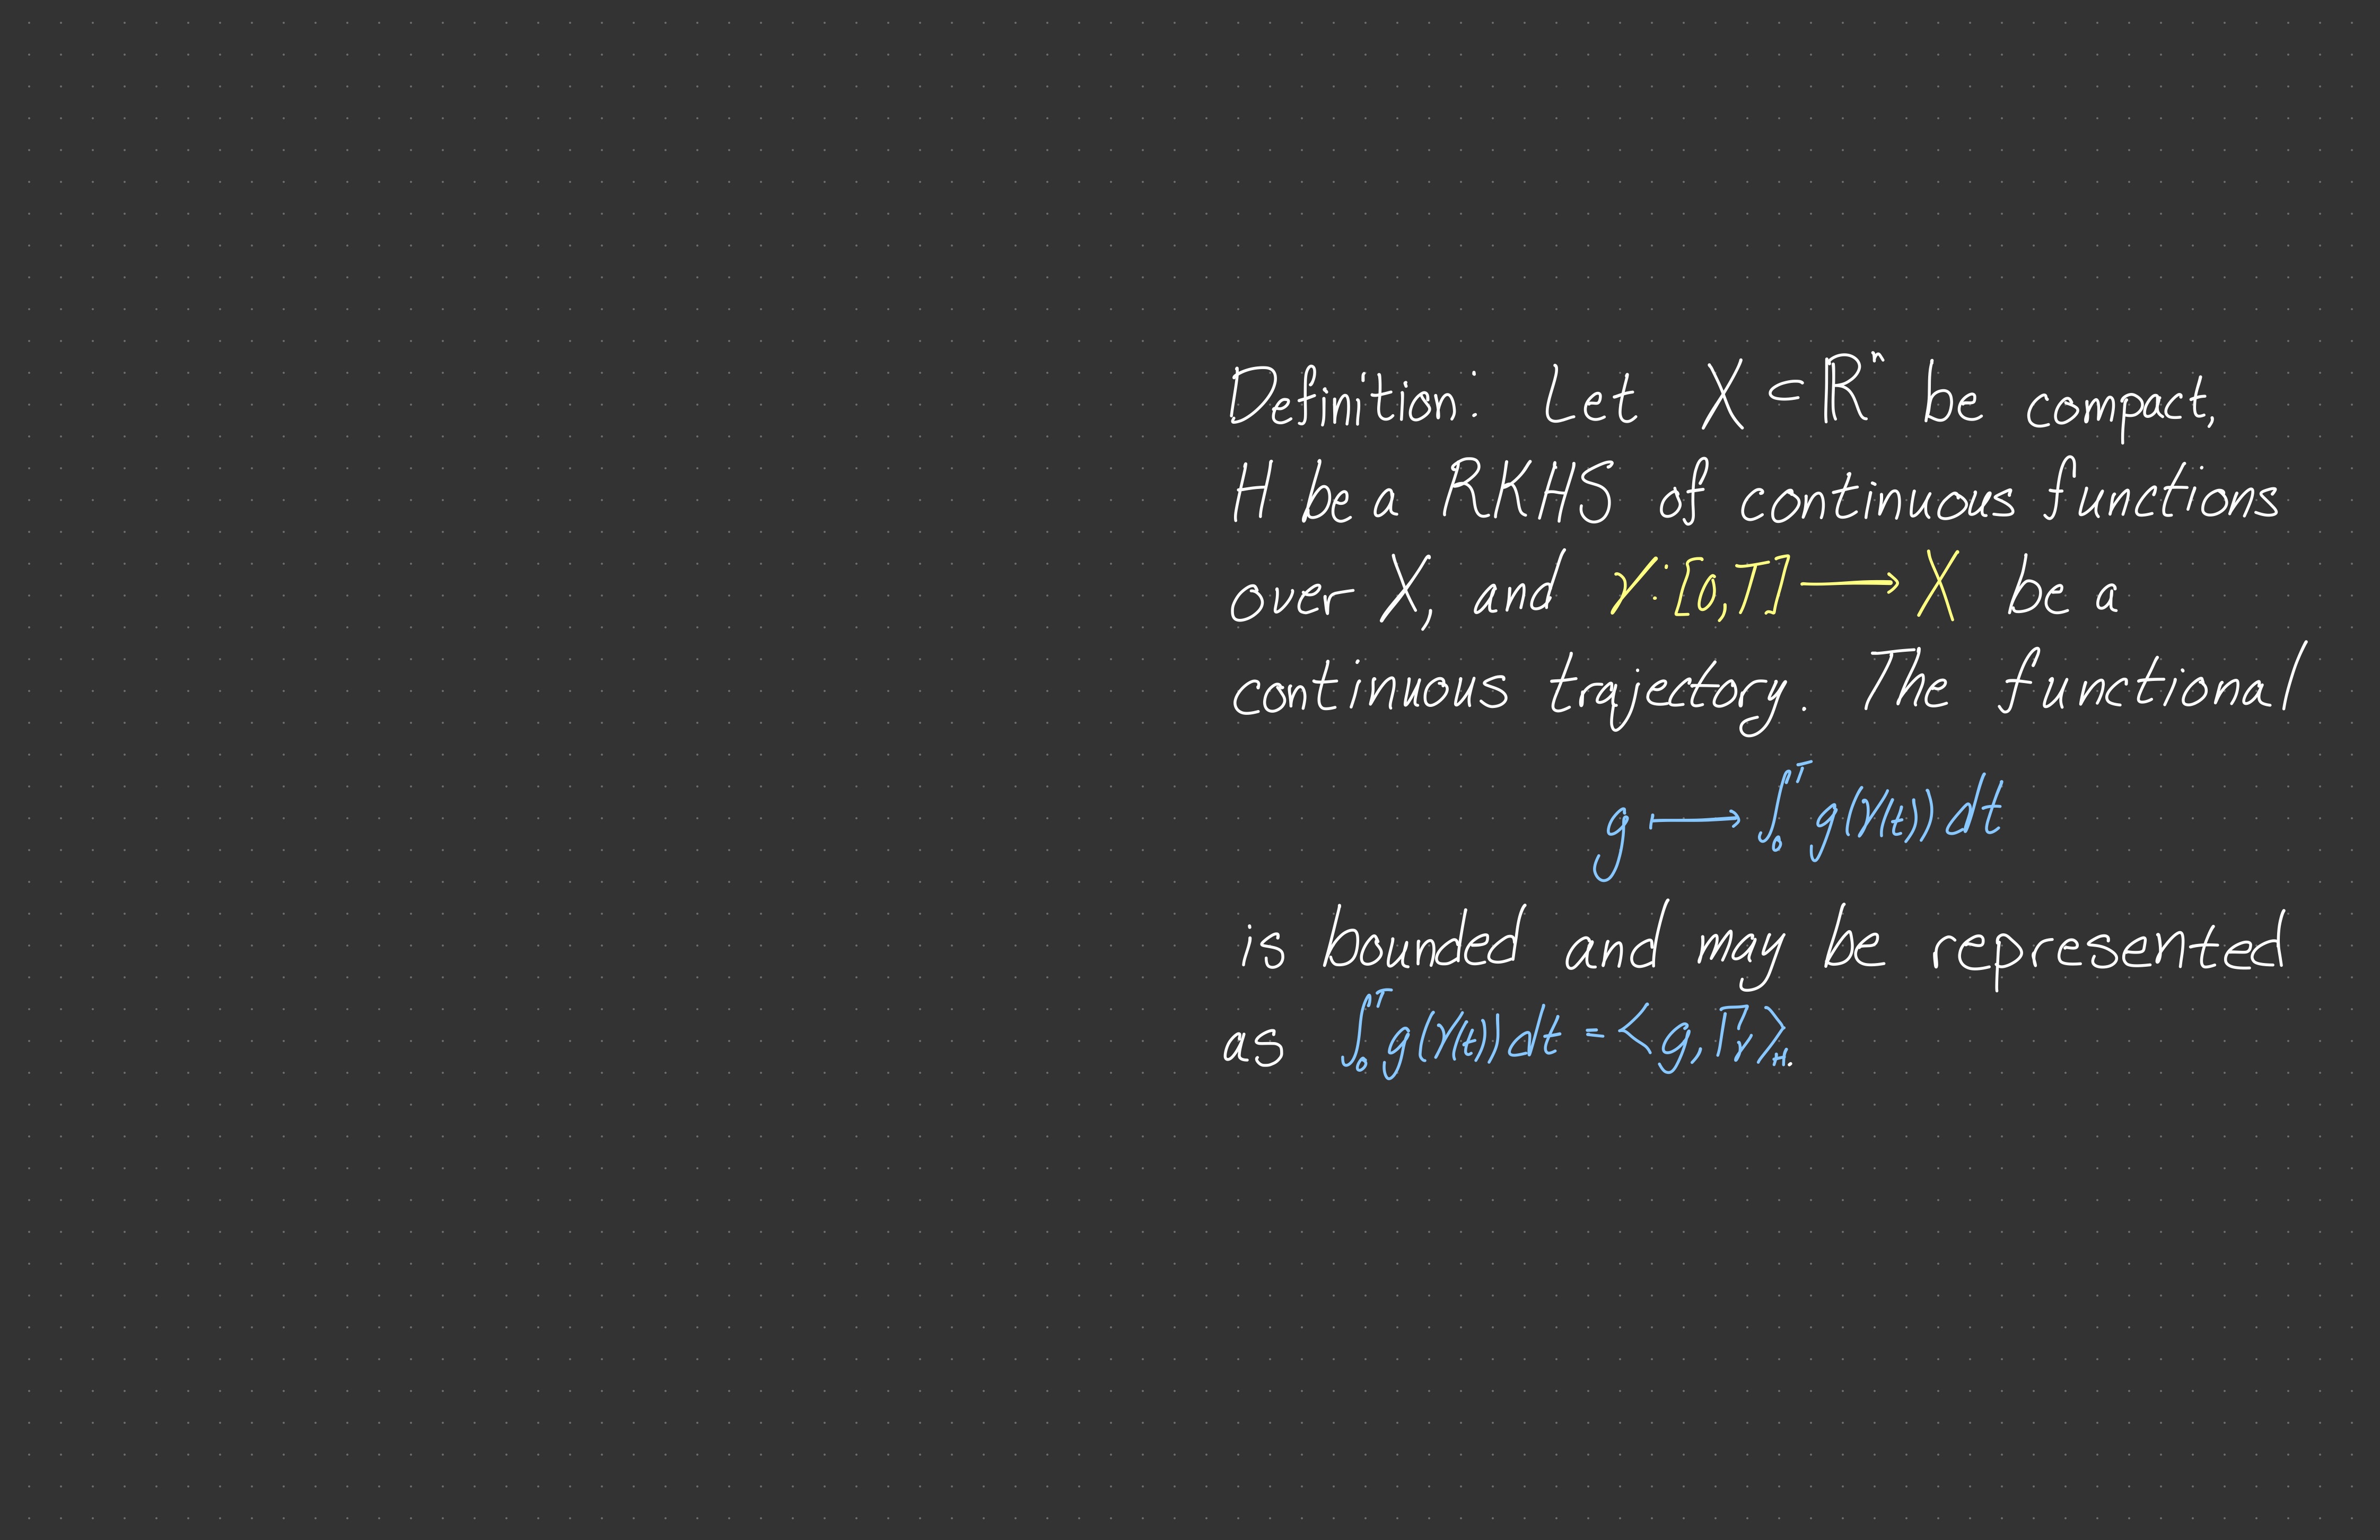 Definition: Let X ⊂ ℝⁿ be compact,
H be a RKHS of continuous functions
over X, and γ:[0,T] ⟶ X be a
continuous trajectory. The functional
g ⟼ ∫₀ᵀ g(γ(t)) dt
is bounded and may be represented
as ∫₀ᵀ g(γ(t)) dt = ⟨g, Γ_γ⟩_H.